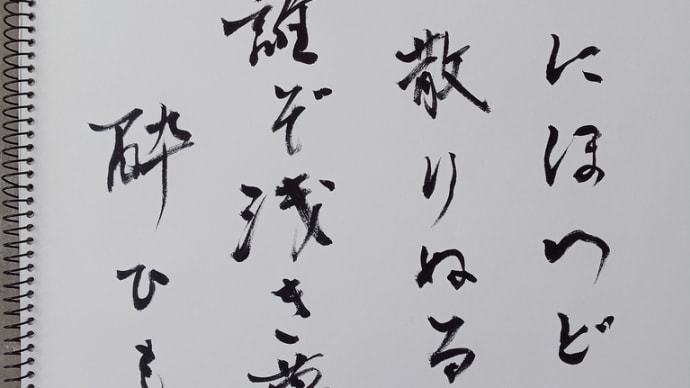 にほへど
散りぬる
誰ぞ浅き夢
酔ひも